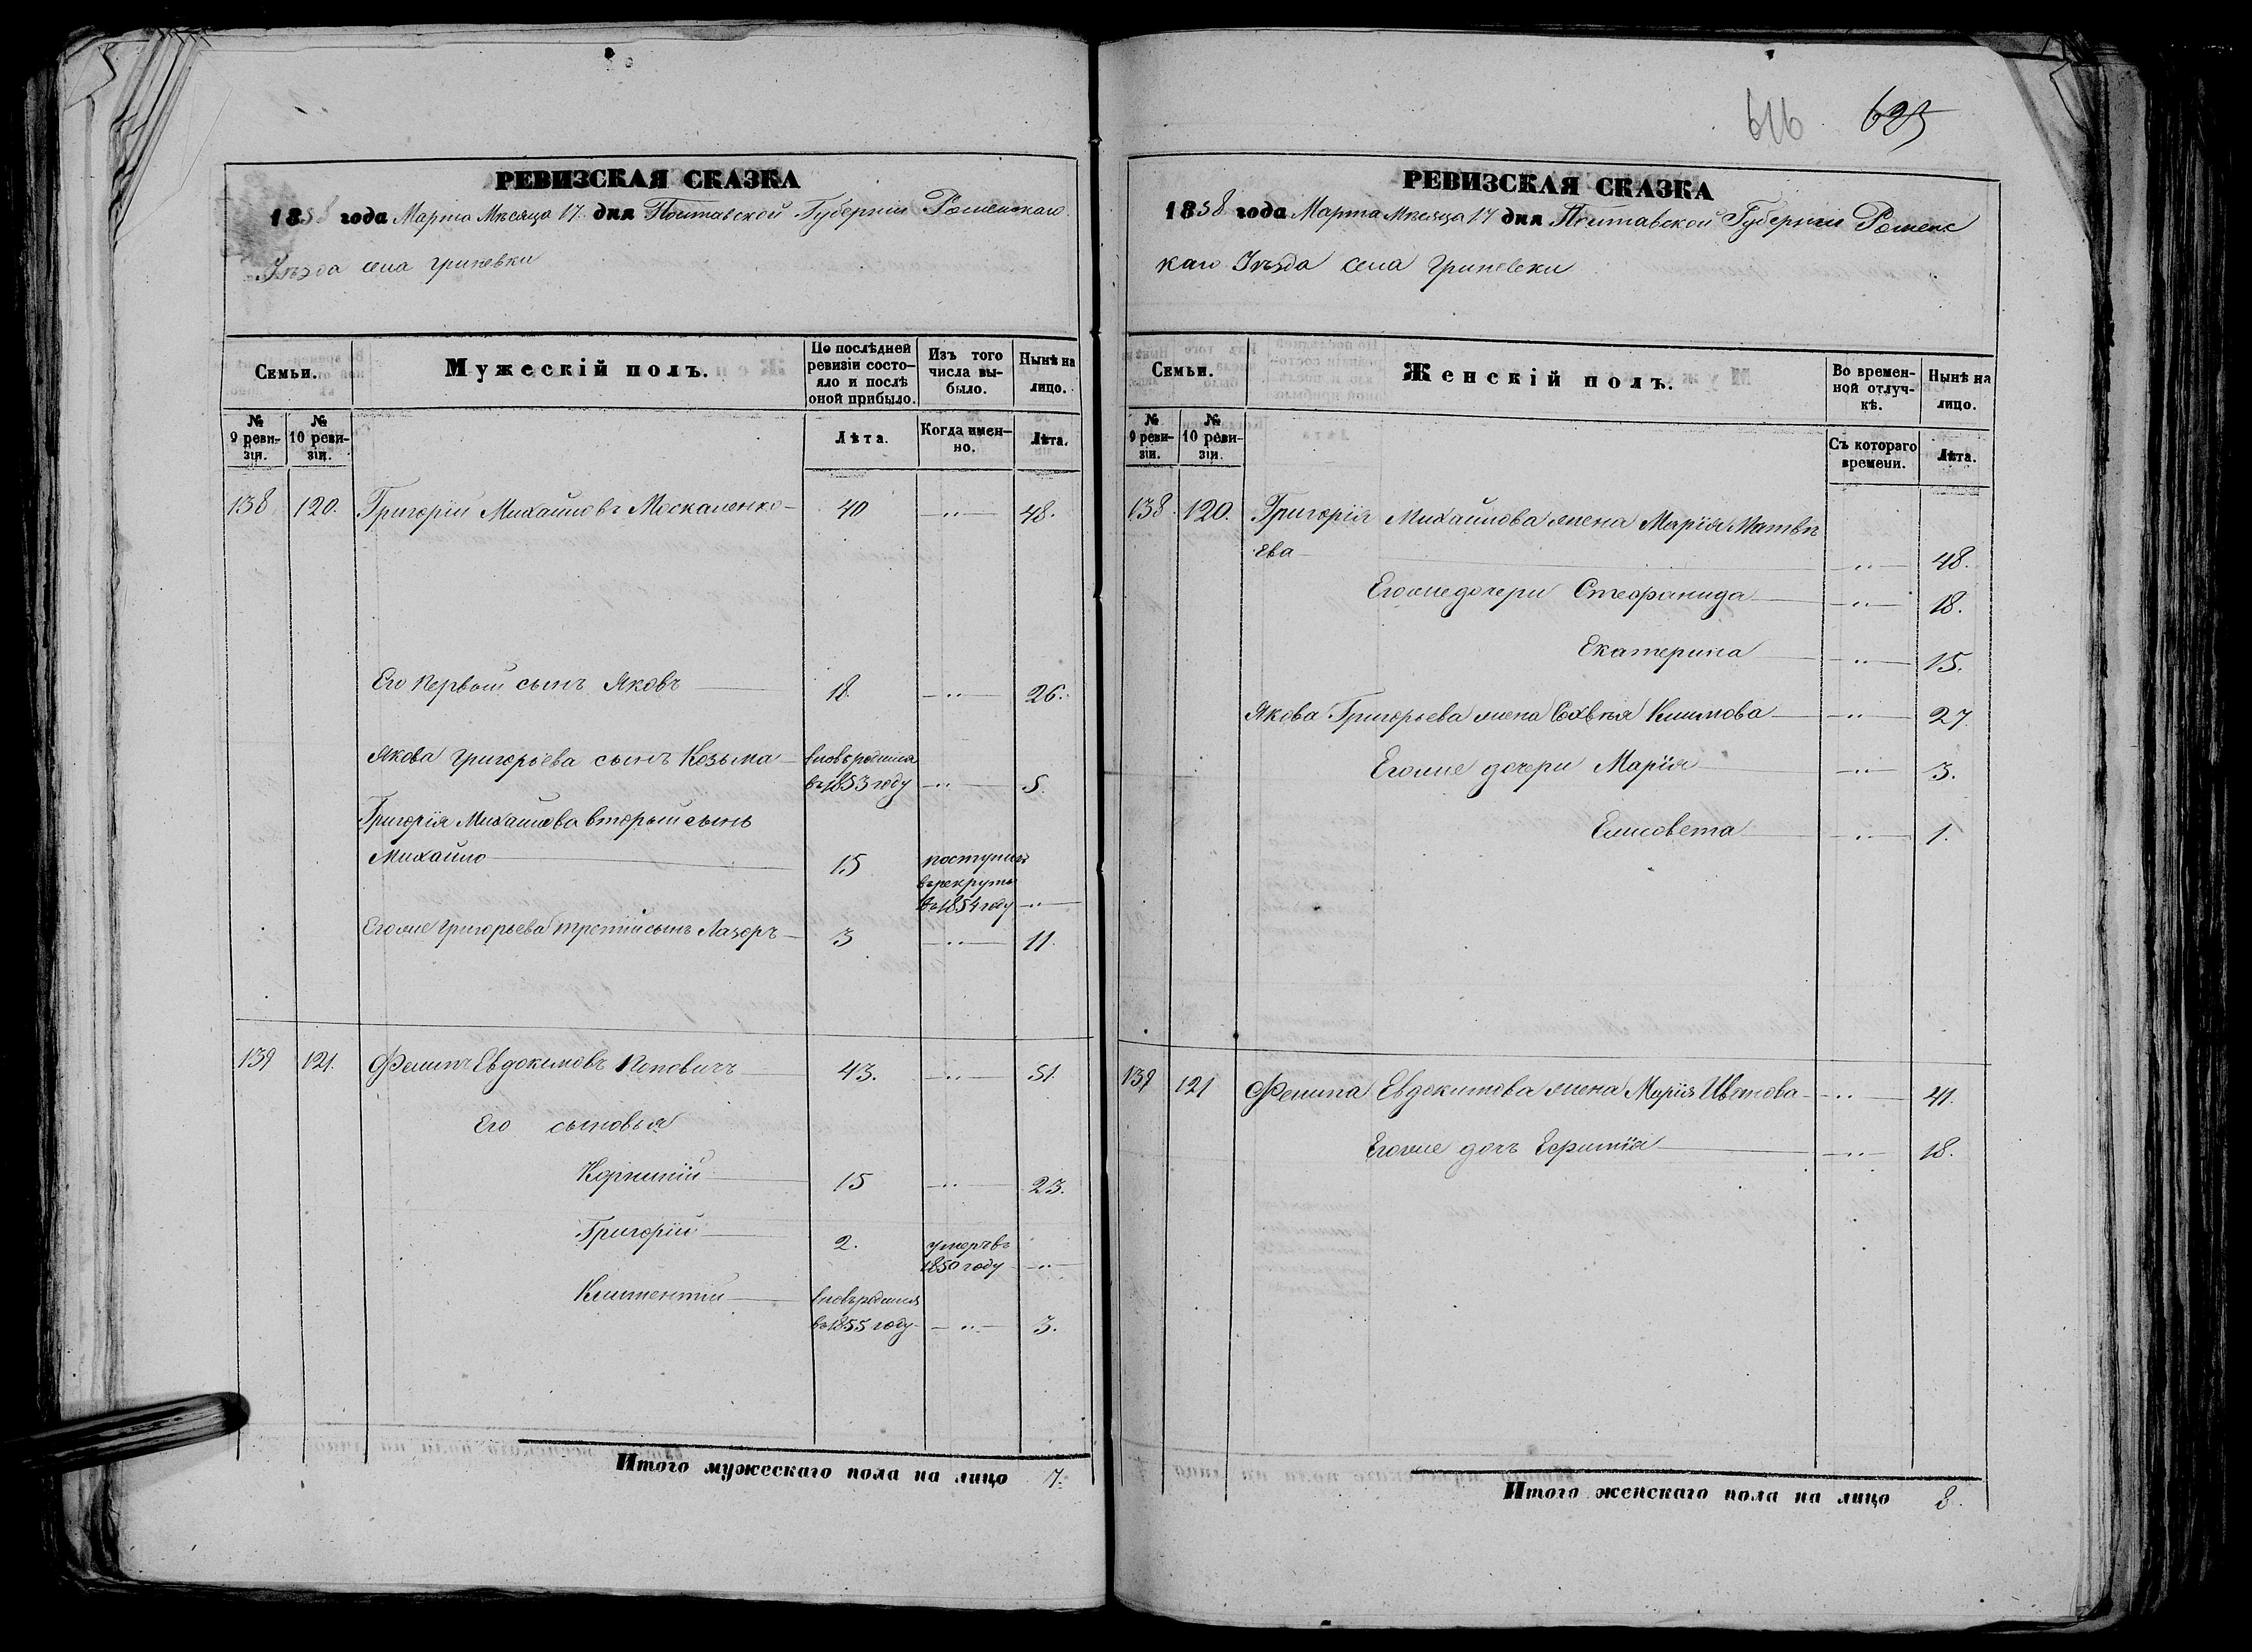 РЕВИЗСКАЯ СКАЗКА
1858 года Марта Мѣсяца 17 дня Полтавской Губерніи Роменскаго
Уѣзда села Гриневки
Семьи.
Мужескій полъ.
По послѣдней ревизіи состояло и послѣ оной прибыло.
Изъ того числа выбыло.
Нынѣ на лицо.
№ 9 ревизіи.
№ 10 ревизіи.
Лѣта.
Когда именно.
Лѣта.
138 120. Григорій Михайловъ Москаленко 40 —"— 48.
Его первый сынъ Яковъ 18. —"— 26.
Якова Григорьева сынъ Козьма вновьродился
въ 1853 году —"— 5.
Григорія Михайлова вторый сынъ
Михайло 15 поступилъ
въ рекруты
въ 1854 году —"—
Егоже Григорьева третій сынъ Лазорь 3 —"— 11.
139 121. Филипъ Евдокимовъ Поповичъ 43. —"— 51.
Его сыновья
Корнилій 15 —"— 23.
Григорій 2. умеръ въ
1850 году —"—
Климентій вновьродился
въ 1855 году —"— 3.
Итого мужескаго пола на лицо 7.
616 685
РЕВИЗСКАЯ СКАЗКА
1858 года Марта Мѣсяца 17 дня Полтавской Губерніи Роменс
каго Уѣзда села Гриневки
Семьи.
Женскій полъ.
Во временной отлучкѣ.
Нынѣ на лицо.
№ 9 ревизіи.
№ 10 ревизіи.
Съ котораго времени.
Лѣта.
138. 120. Григорія Михайлова жена Марія Матвѣ
ева —"— 48.
Егоже дочери Стефанида —"— 18.
Екатерина —"— 15.
Якова Григорьева жена Софія Климова —"— 27
Егоже дочери Марія —"— 3.
Елисовета —"— 1.
139 121 Филипа Евдокимова жена Марія Иванова —"— 41.
Егоже дочь Ефимія —"— 18.
Итого женскаго пола на лицо 8.